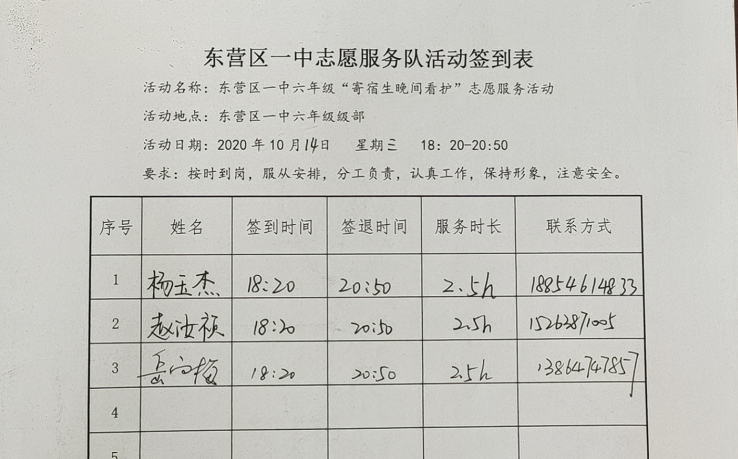 东营区一中志愿服务队活动签到表
活动名称：东营区一中六年级“寄宿生晚间看护”志愿服务活动
活动地点：东营区一中六年级级部
活动日期：2020 年 10 月 14日 星期三 18：20-20:50
要求：按时到岗，服从安排，分工负责，认真工作，保持形象，注意安全。
序号 姓名 签到时间 签退时间 服务时长 联系方式
1 杨玉杰 18:20 20:50 2.5h 18854614833
2 赵汝祯 18:20 20:50 2.5h 15263871005
3 岳向梅 18:20 20:50 2.5h 13864747857
4
5